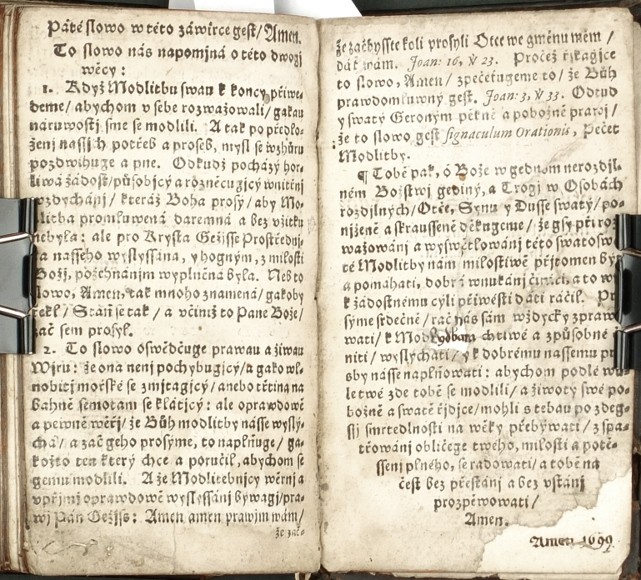 Páté slowo w této záwírce gest/ Amen.
To slowo nás napomjná o této dwogj
wěcy:
1. Když Modlitbu swau k koncy přiwe-
deme/ abychom v sebe rozwažowali/ gakau
se modlili. A tak po předlo-
ženj nassjch potřeb a proseb, mysl se wzhůru
pozdwihuge a pne. Odkudž pocházý hor-
liwá žádost/ působjcý a rozněcugjcý wnitřnj
wzdychánj/ kteráž Boha prosý/ aby Mo-
litba promluwená daremná a bez vžitku
nebyla: ale pro Krysta Gežjsse Prostřednj-
a nasseho wyslyssána, y hogným, z milosti
Božj, požehnánjm wyplněná byla. Neb to
slowo, Amen, tak mnoho znamená/ gakoby
řekl/ Staň se tak/ a včiniž to Pane Bože/
zač sem prosyl.
2. To slowo oswědčuge prawau a žiwau
Wjru: že ona nenj pochybugjcý/ a gako wl-
nobitj mořské se zmjtagjcý/ anebo třtina na
bahně semotam se klátjcý: ale oprawdowě
a pewně wěřj/ že Bůh modlitby násse wyslý-
chá/ a zač geho prosyme, to naplňuge/ ga-
kožto ten který chce a poručil, abychom se
gemu modlili. A že Modlitebnjcy wěrnj a
vpřjmj oprawdowě wyslyssáni býwagj/ pra-
wj Pán Gežjss: Amen amen prawjm wám/
že zač-
že začbysste koli prosyli Otce we gménu mém/
dát wám. Joan: 16, ℣ 23. Pročež řjkagjce
to slowo, Amen/ zpečeťugeme to/ že Bůh
prawdomluwný gest. Joan: 3, ℣ 33. Odtud
y swatý Geroným pěkně a pobožně prawj/
že to slowo gest signaculum Orationis, Pečet
Modlitby.
¶ Tobě pak, ó Bože w gednom nerozdjl-
ném Božstwj gediný, a Trogj w Osobách
rozdjlných/ Otče, Synu y Dusse swatý/ po-
njženě a skraussené děkugeme/ že gsy při roz-
wažowánj a wyswětlowánj této swatoswa-
té Modlitby nám milostiwě přjtomen býti
a pomáhati, dobrá wnuknutj činiti, a to w
k žádostnému cýli přiwésti dáti ráčil. Pr
symě srdečně/ rač nás sám wždycky zprawo
wati/ k Modlydbam chtiwé a způsobné
niti/ wyslýchati/ y k dobrému nassemu pr
sby násse naplňowati: abychom podlé wů-
le twé zde tobě se modlili/ a žiwoty swé po-
božně a swatě řjdjce/ mohli s tebau po zdeg-
ssj smrtedlnosti na wěky přebýwati/ z spa-
třowánj obličege twého, milosti a potě-
ssenj plného, se radowati/ a tobě na
čest bez přestánj a bez vstánj
prozpěwowati/
Amen.
Amen 1699